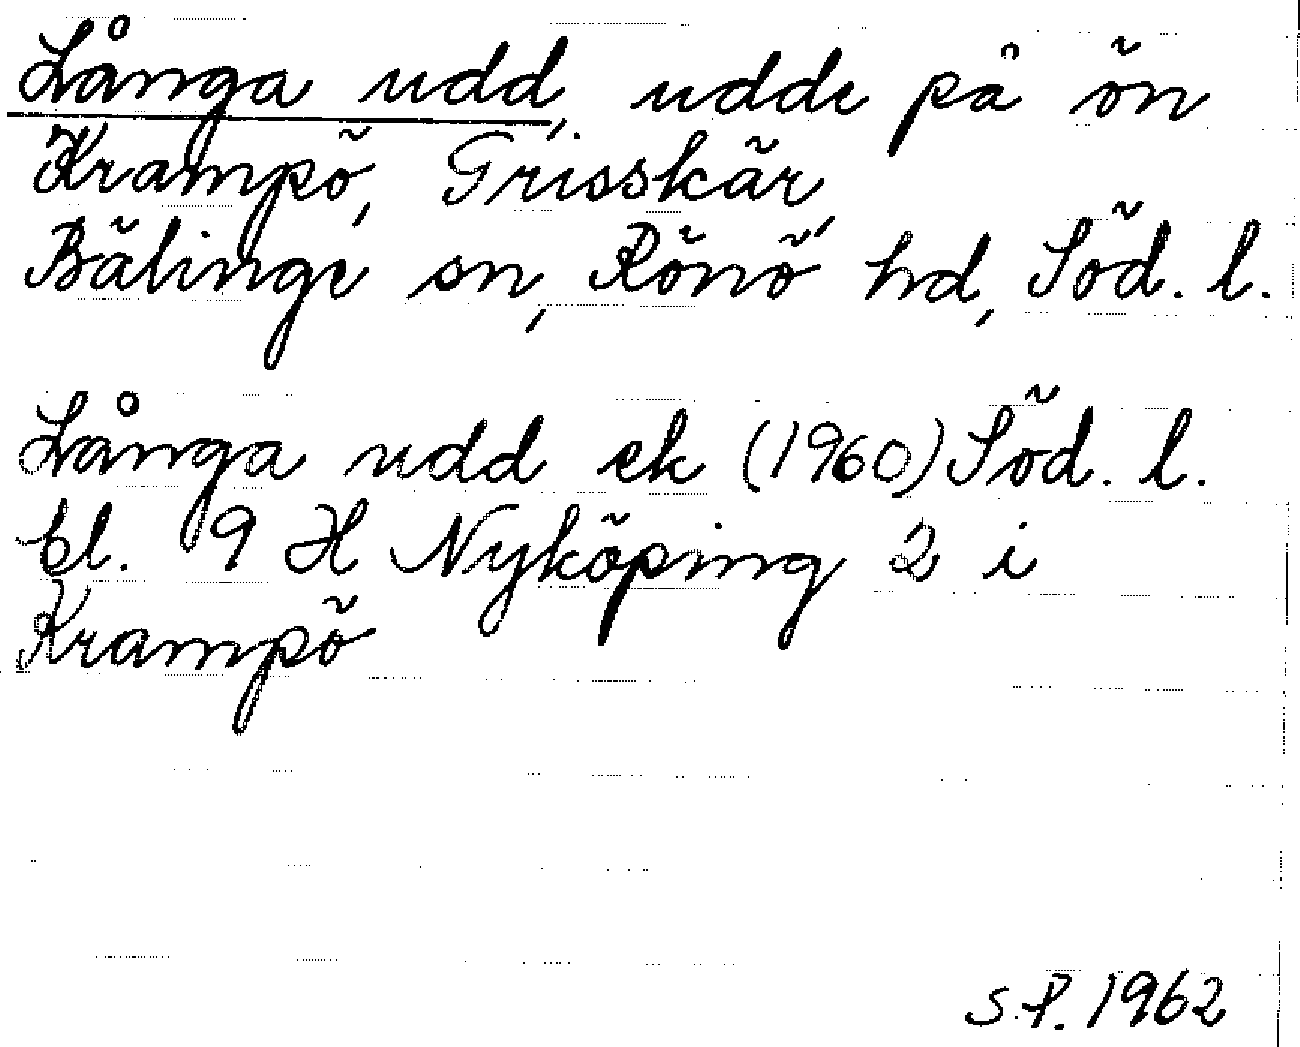 Långa udd, udde på ön
Krampö, Grisskär,
Bälinge sn, Rönö hd, Söd. l.
Långa udd ek (1960) Söd. l.
bl. 9 H Nyköping 2 i
Krampö
S.P. 1962